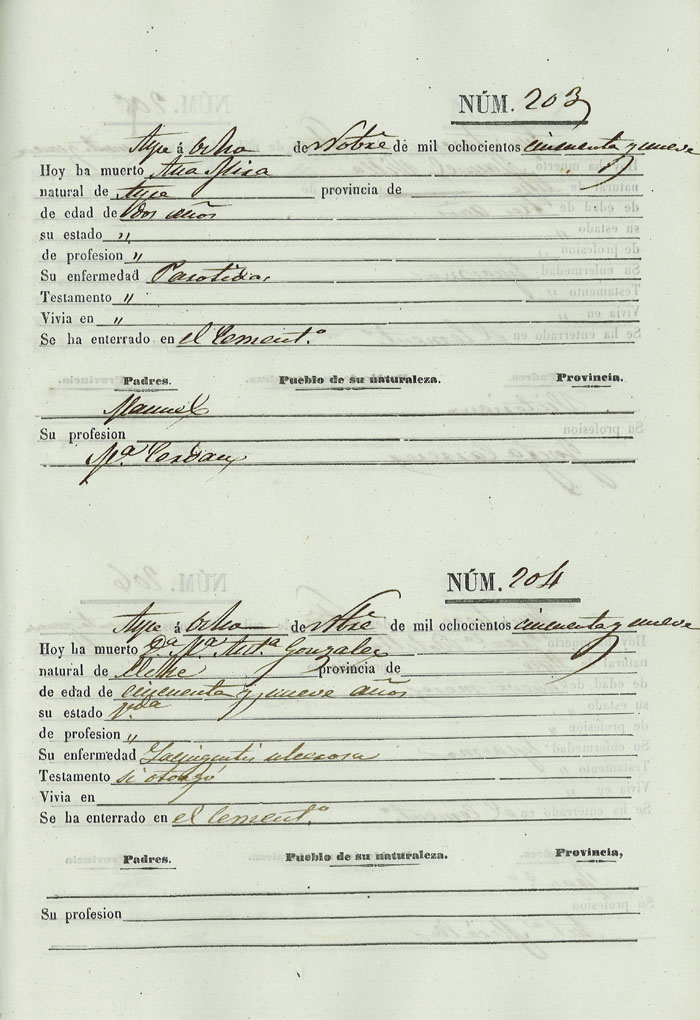 NÚM. 203
Aspe á Ocho de Nobre de mil ochocientos cincuenta y nueve
Hoy ha muerto Ana Mira
natural de Aspe provincia de
de edad de dos años
su estado „
de profesion „
Su enfermedad Parotidas
Testamento „
Vivia en „
Se ha enterrado en el Cement.o
Padres. Pueblo de su naturaleza. Provincia.
Manuel
Su profesion
Ma. Cerdan
NÚM. 204
Aspe á Ocho de Nbre de mil ochocientos cincuenta y nueve
Hoy ha muerto Da. Ma. Anta. Gonzalez
natural de Elche provincia de
de edad de cincuenta y nueve años
su estado Vda
de profesion „
Su enfermedad ulcerosa
Testamento si otorgó
Vivia en
Se ha enterrado en el Cement.o
Padres. Pueblo de su naturaleza. Provincia,
Su profesion